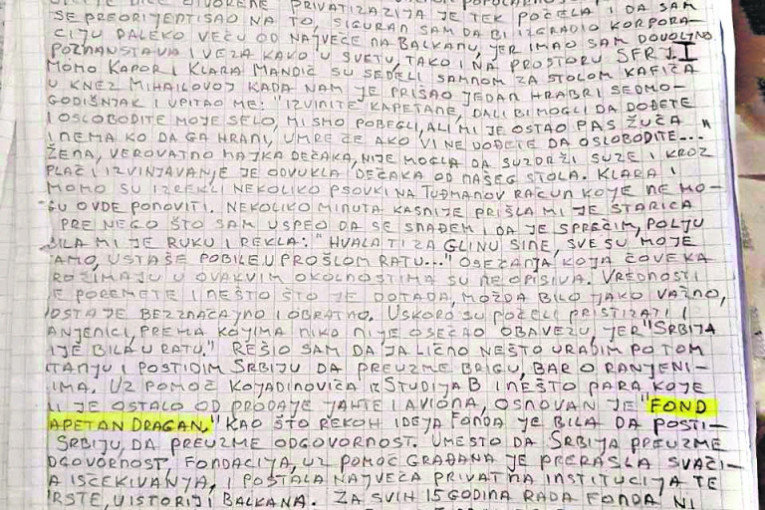 OTVORENE PRIVATIZAZIJA JE TEK POČELA I DA SAM
SE PREORIJENTISAO NA TO, SIGURAN SAM DA BI IZGRADIO KORPORA-
CIJU DALEKO VEĆU OD NAJVEĆE NA BALKANU, JER IMAO SAM DOVOLJNO
POZNANSTAVA I VEZA KAKO U SVETU, TAKO I NA PROSTORU SFRJ.
MOMO KAPOR I KLARA MANDIČ SU SEDELI SAMNOM ZA STOLOM KAFIČA
U KNEZ MIHAILOVOJ KADA NAM JE PRIŠAO JEDAN HRABRI SEDMO-
GODIŠNJAK I UPITAO ME: "IZVINITE KAPETANE, DALI BI MOGLI DA DOĐETE
I OSLOBODITE MOJE SELO, MI SMO POBEGLI, ALI MI JE OSTAO PAS ŽUČA
I NEMA KO DA GA HRANI, UMREČE AKO VI NE DOĐETE DA OSLOBODITE..."
ŽENA, VEROVATNO MAJKA DEČAKA, NIJE MOGLA DA SUZDRŽI SUZE I KROZ
PLAČ I IZVINJAVANJE JE ODVUKLA DEČAKA OD NAŠEG STOLA. KLARA I
MOMO SU IZREKLI NEKOLIKO PSOVKI NA TUĐMANOV RAČUN KOJE NE MO-
GU OVDE PONOVITI. NEKOLIKO MINUTA KASNIJE PRIŠLA MI JE STARICA
PRE NEGO ŠTO SAM USPEO DA SE SNAĐEM I DA JE SPREČIM, POLJU
BILA MI JE RUKU I REKLA: "HVALA TI ZA GLINU SINE, SVE SU MOJE
TAMO, USTAŠE POBILE U PROŠLOM RATU..." OSEČANJA KOJA ČOVEKA
PROŽIMAJU U OVAKVIM OKOLNOSTIMA SU NEOPISIVA. VREDNOSTI
SE POREMETE I NEŠTO ŠTO JE DOTADA, MOŽDA BILO JAKO VAŽNO,
OSTAJE BEZZNAČAJNO I OBRATNO. USKORO SU POČELI PRISTIZATI I
ANJENICI, PREMA KOJIMA NIKO NIJE OSEČAO OBAVEZU, JER "SRBIJA
IJE BILA U RATU." REŠIO SAM DA JA LIČNO NEŠTO URADIM PO TOM
ITANJU I POSTIDIM SRBIJU DA PREUZME BRIGU, BAR O RANJENI-
IMA. UZ POMOČ KOJADINOVIČA IZ STUDIJA B I NEŠTO PARA KOJE
I JE OSTALO OD PRODAJE JAHTE I AVIONA, OSNOVAN JE "FOND
APETAN DRAGAN." KAO ŠTO REKOH IDEJA FONDA JE BILA DA POSTI-
SRBIJU, DA PREUZME ODGOVORNOST. UMESTO DA SRBIJA PREUZME
DGOVORNOST, FONDACIJA, UZ POMOČ GRAĐANA JE PRERASLA SVAČI-
A ISČEKIVANJA, I POSTALA NAJVEČA PRIVATNA INSTITUCIJA TE
RSTE, U ISTORIJI BALKANA. ZA SVIH 15 GODINA RADA FONDA NI